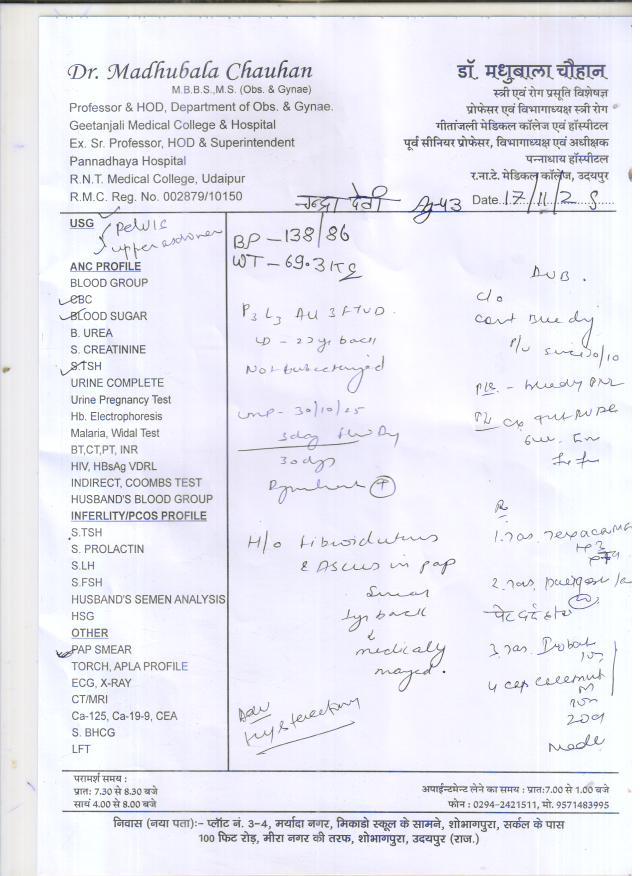 Dr. Madhubala Chauhan
M.B.B.S.,M.S. (Obs. & Gynae)
Professor & HOD, Department of Obs. & Gynae.
Geetanjali Medical College & Hospital
Ex. Sr. Professor, HOD & Superintendent
Pannadhaya Hospital
R.N.T. Medical College, Udaipur
R.M.C. Reg. No. 002879/10150
डॉ. मधुबाला चौहान
स्त्री एवं रोग प्रसूति विशेषज्ञ
प्रोफेसर एवं विभागाध्यक्ष स्त्री रोग
गीतांजली मेडिकल कॉलेज एवं हॉस्पीटल
पूर्व सीनियर प्रोफेसर, विभागाध्यक्ष एवं अधीक्षक
पन्नाधाय हॉस्पीटल
र.ना.टे. मेडिकल कॉलेज, उदयपुर
देवी Ag-43 Date 17/11/25
USG
Pelvis
upper abdomen
ANC PROFILE
BLOOD GROUP
CBC
BLOOD SUGAR
B. UREA
S. CREATININE
S.TSH
URINE COMPLETE
Urine Pregnancy Test
Hb. Electrophoresis
Malaria, Widal Test
BT,CT,PT, INR
HIV, HBsAg VDRL
INDIRECT, COOMBS TEST
HUSBAND'S BLOOD GROUP
INFERLITY/PCOS PROFILE
S.TSH
S. PROLACTIN
S.LH
S.FSH
HUSBAND'S SEMEN ANALYSIS
HSG
OTHER
PAP SMEAR
TORCH, APLA PROFILE
ECG, X-RAY
CT/MRI
Ca-125, Ca-19-9, CEA
S. BHCG
LFT
BP-138/86
WT-69.3 KG
P3 L3 All 3 FTVD
LD - 22 yrs back
Not tubectomized
LMP- 30/10/25
3day
30 days
H/o fibroid uterus
& ASCUS in pap
smear
1yr back
&
medically
Adv
Hysterectomy
AUB.
c/o
cont Bleeding
P/V since 30/10
R
2. Tas.
3. Tas.
4 cap
परामर्श समय :
प्रात: 7.30 से 8.30 बजे
सायं 4.00 से 8.00 बजे
अपाईन्टमेन्ट लेने का समय : प्रात:7.00 से 1.00 बजे
फोन : 0294-2421511, मो. 9571483995
निवास (नया पता):- प्लॉट नं. 3-4, मर्यादा नगर, मिकाडो स्कूल के सामने, शोभागपुरा, सर्कल के पास
100 फिट रोड़, मीरा नगर की तरफ, शोभागपुरा, उदयपुर (राज.)